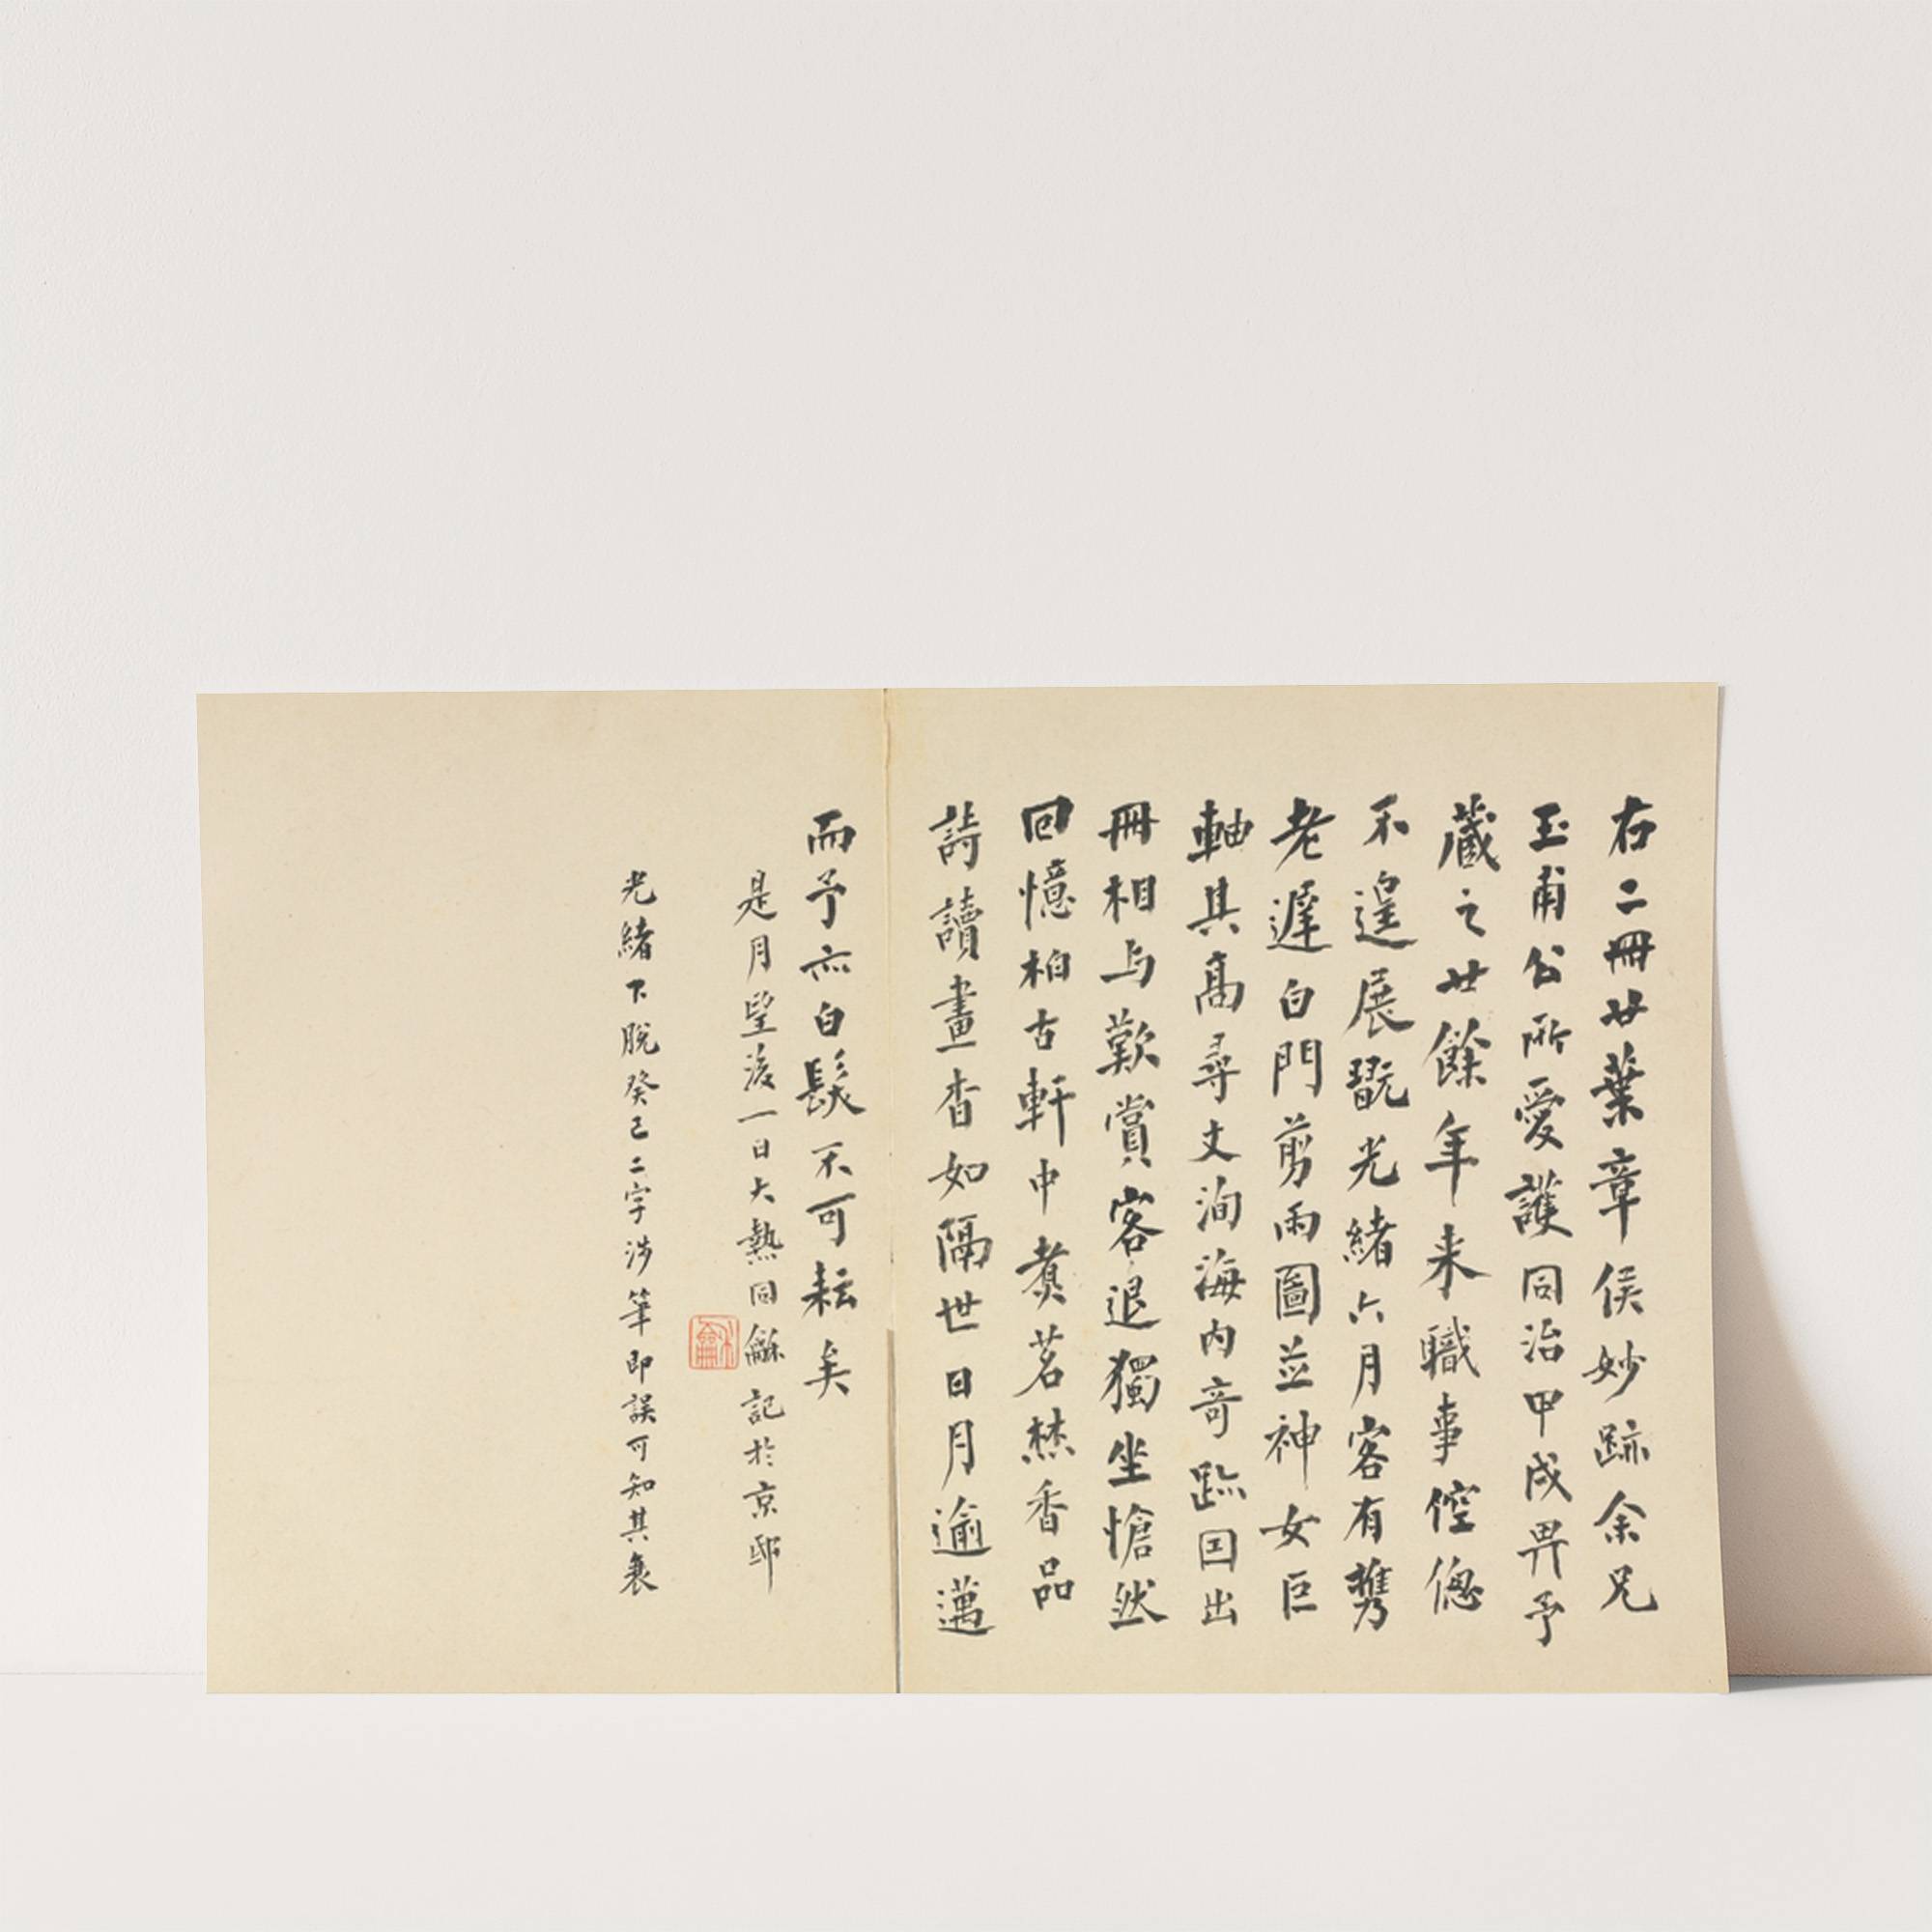 右二冊廿葉章侯妙跡余兄
玉甫公所愛護同治甲戌畀予
蔵之廿餘年来職事倥偬
不遑展翫光緒六月客有攜
老遲白門剪雨圖並神女巨
軸其高尋丈洵海内奇跡因出
冊相与歎賞客退獨坐愴然
回憶柏古軒中煑茗焚香品
詩讀畫杳如隔世日月逾邁
而予亦白髮不可耘矣
是月望後一日大熱同龢記於京邸
光緒下脫癸巳二字涉筆即誤可知其衰